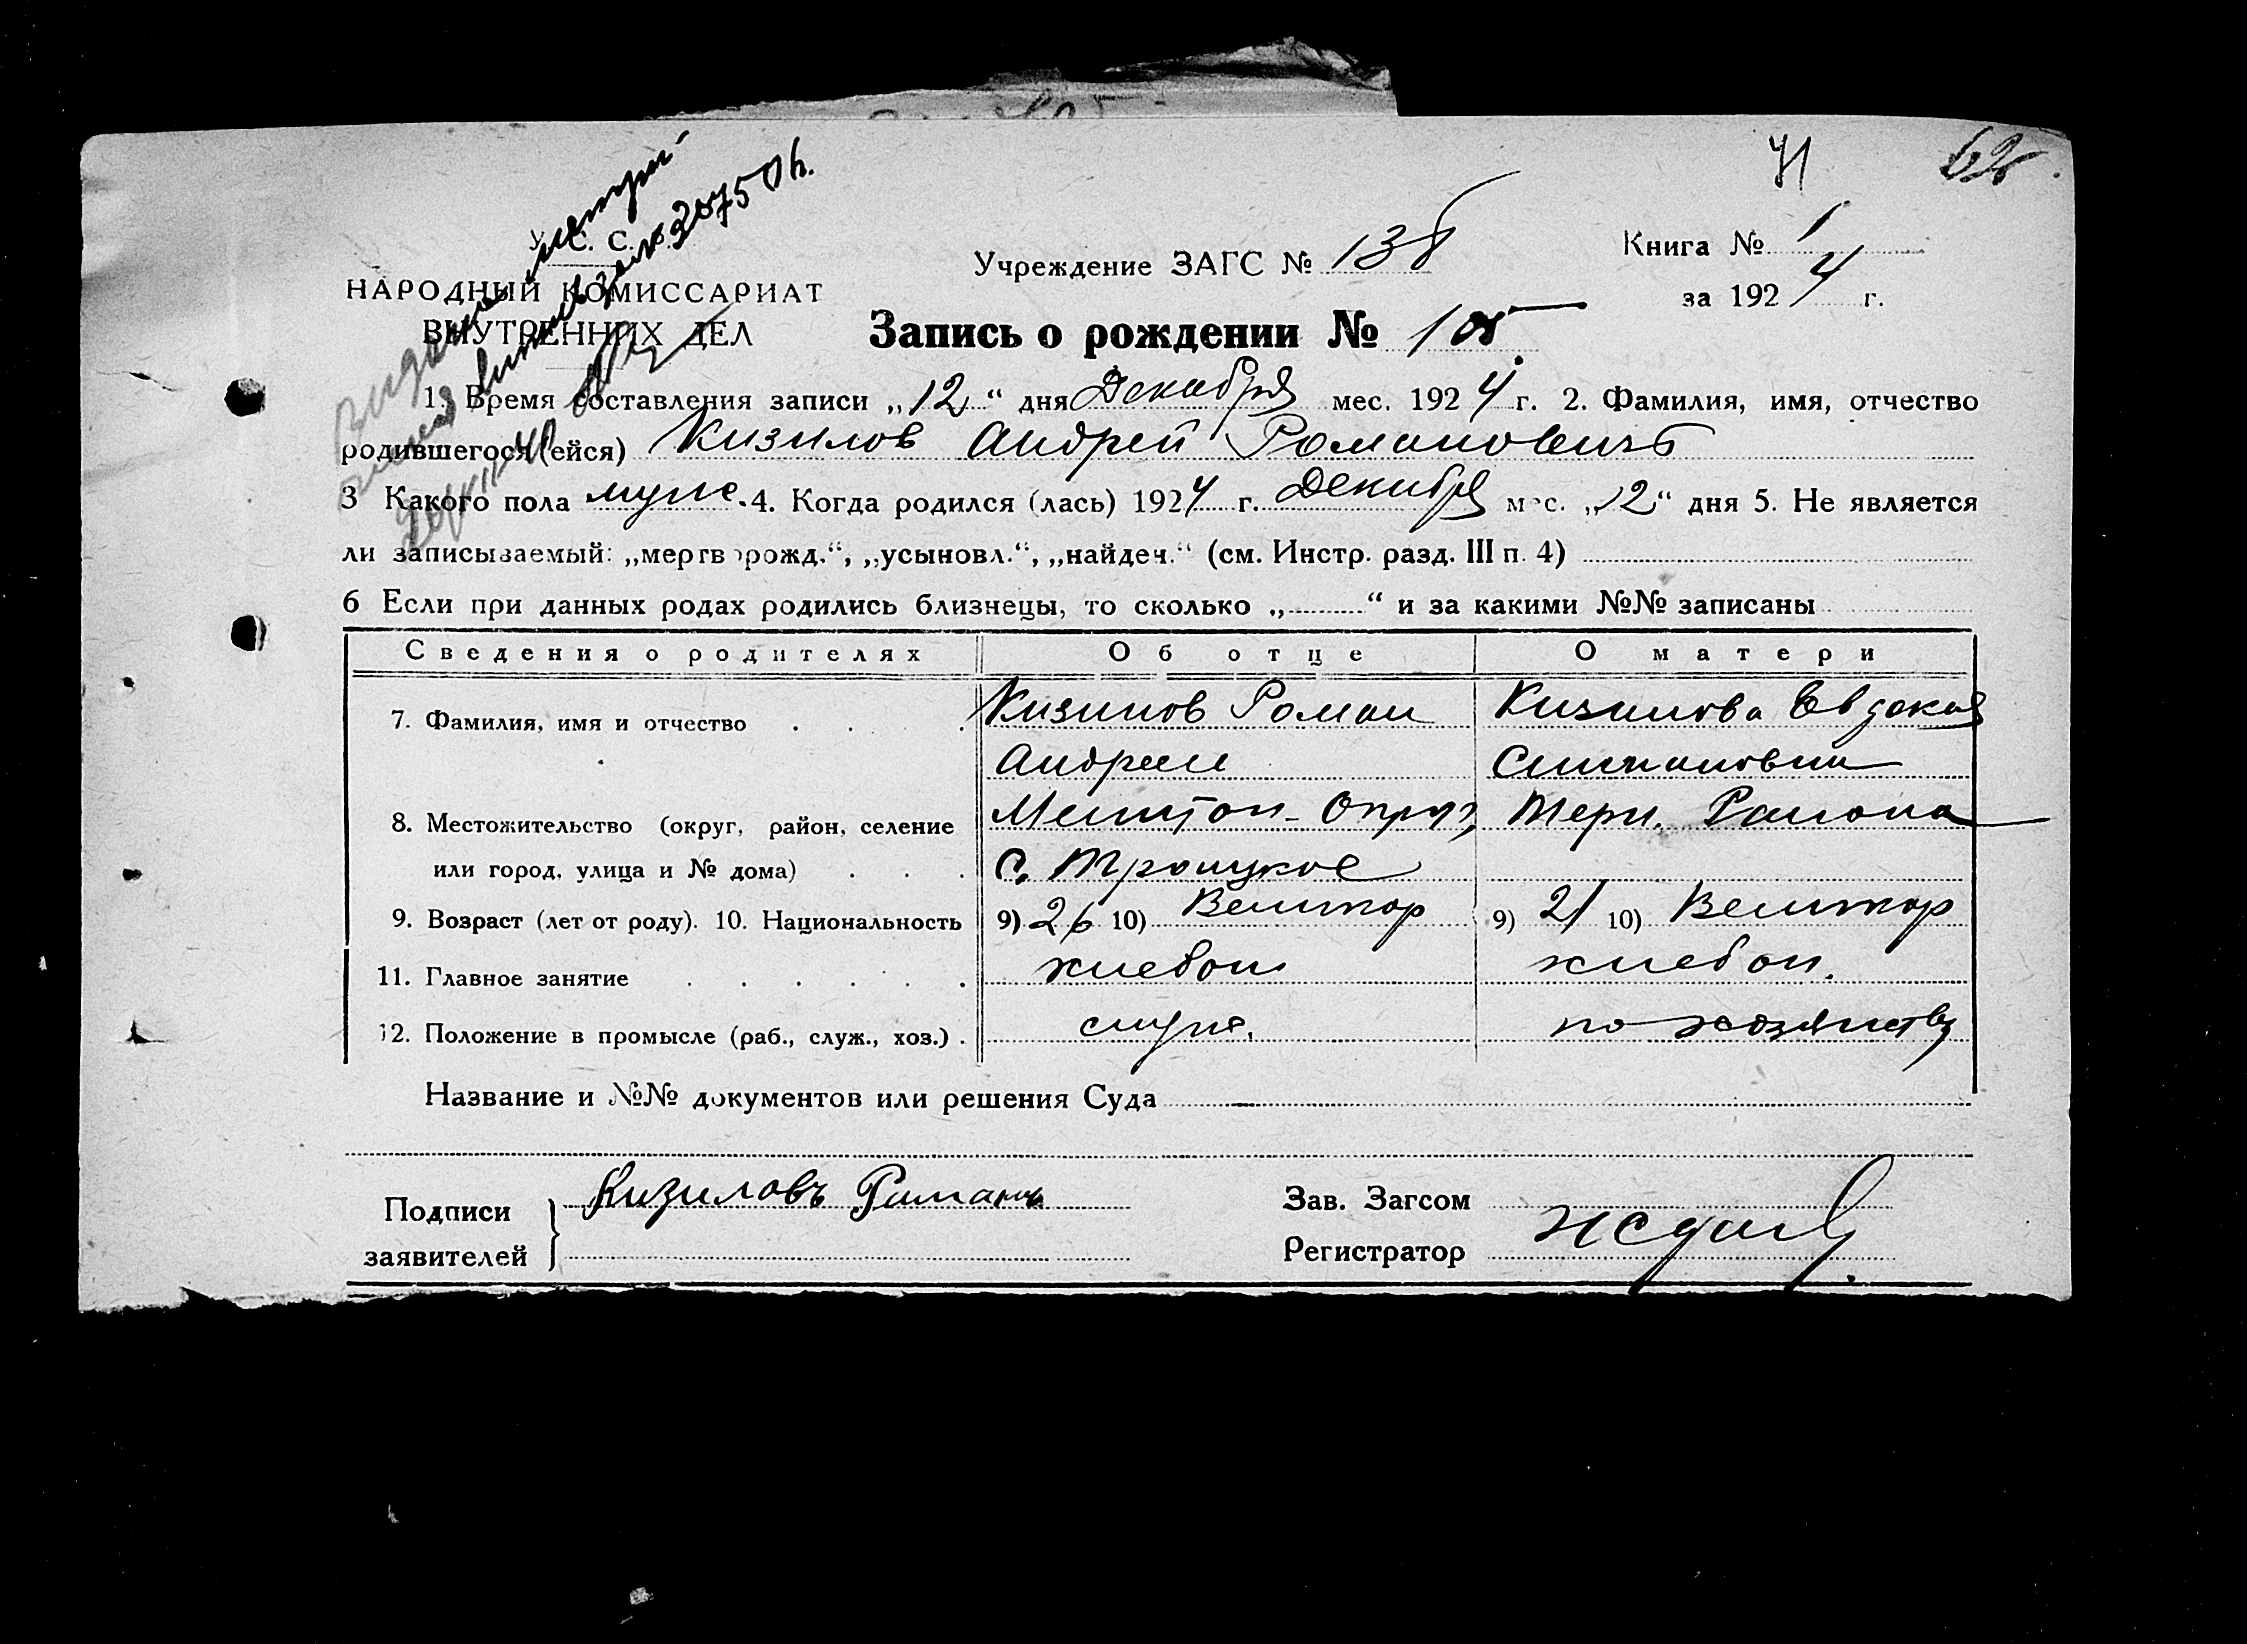 71 62
У. С. С.
Учреждение ЗАГС № 136
Книга № 1
НАРОДНЫЙ КОМИССАРИАТ
за 1924 г.
ВНУТРЕННИХ ДЕЛ
Запись о рождении № 105
1. Время составления записи „12“ дня Декабря мес. 1924 г. 2. Фамилия, имя, отчество
родившегося (ейся) Кизилов Андрей Романовичъ
3 Какого пола муж. 4. Когда родился (лась) 1924 г. Декабря мес. „12“ дня 5. Не является
ли записываемый: „мертворожд.“, „усыновл.“, „найден.“ (см. Инстр. разд. III п. 4)
6 Если при данных родах родились близнецы, то сколько „ “ и за какими №№ записаны
Сведения о родителях Об отце О матери
7. Фамилия, имя и отчество Кизилов Роман Кизилова Евдокия
Андреев Степановна
8. Местожительство (округ, район, селение Мелитоп. Округ, Терп. Района
или город, улица и № дома) с. Троицкое
9. Возраст (лет от роду). 10. Национальность 9) 26 10) Великор 9) 21 10) Великор
11. Главное занятие хлебоп. хлебоп.
12. Положение в промысле (раб., служ., хоз.) служ. по хозяйству
Название и №№ документов или решения Суда
Подписи Кизиловъ Романъ Зав. Загсом
заявителей Регистратор